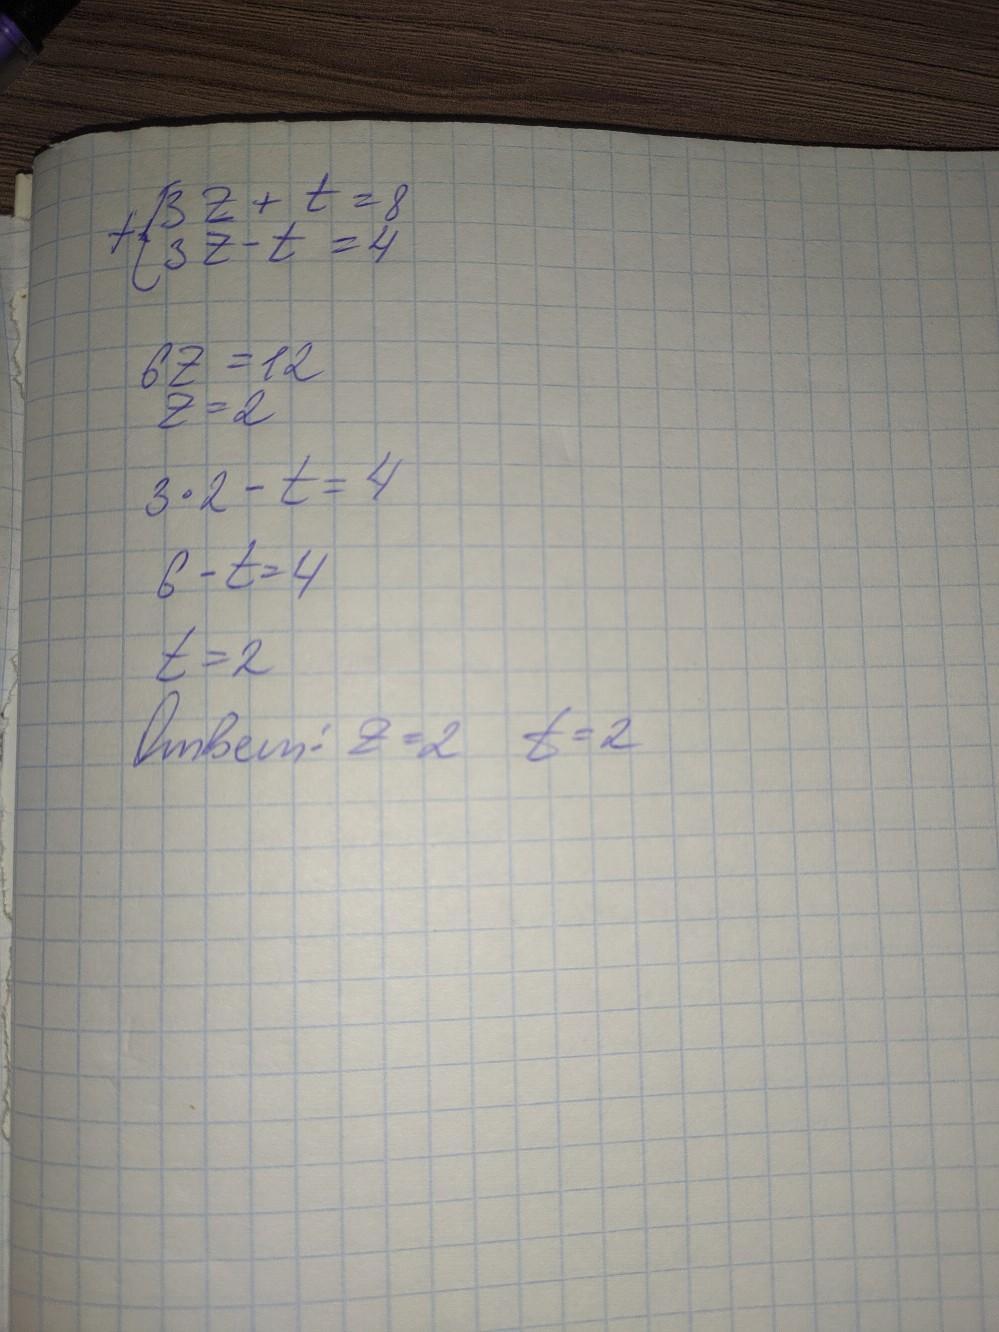 +{3z + t = 8
3z - t = 4
6z = 12
z = 2
3 · 2 - t = 4
6 - t = 4
t = 2
Ответ: z = 2 t = 2